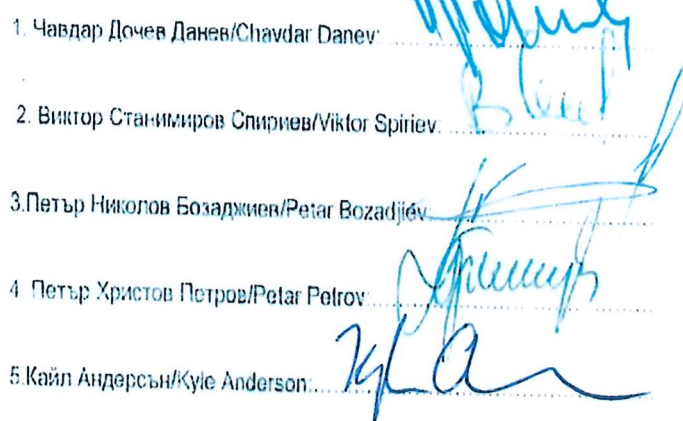 1. Чавдар Дочев Данев/Chavdar Danev:
2. Виктор Станимиров Спириев/Viktor Spiriev:
3.Петър Николов Бозаджиев/Petar Bozadjiev
4. Петър Христов Петров/Petar Petrov:
5.Кайл Андерсън/Kyle Anderson: